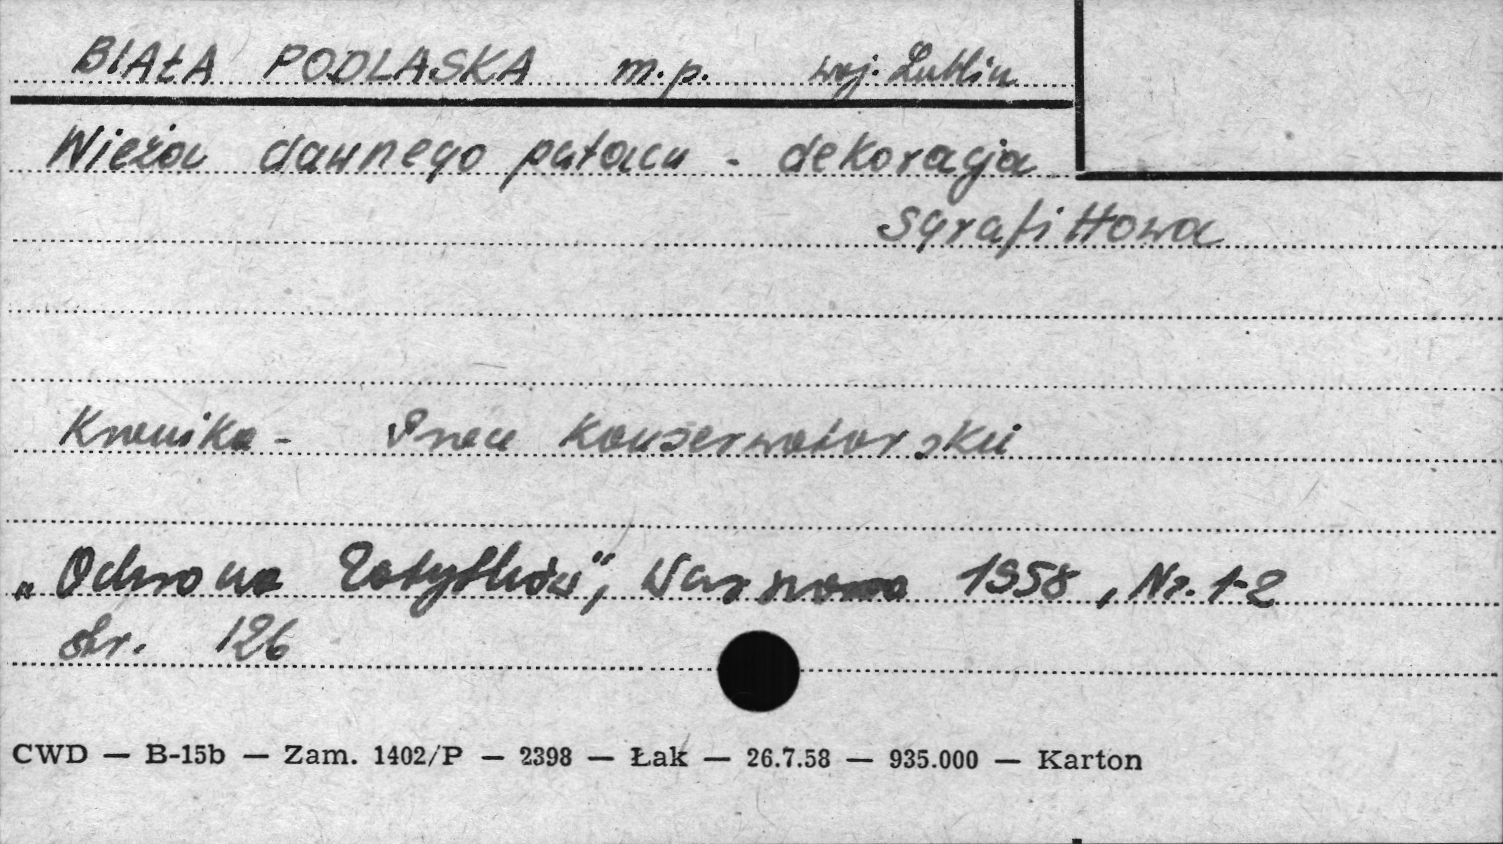 BIAŁA PODLASKA m.p. woj. Lublin
Wieża dawnego pałacu - dekoracja
sgrafittowa
Kronika - Prace konserwatorskie
„Ochrona Zabytków", Warszawa 1958, Nr. 1-2
str. 126
CWD — B-15b — Zam. 1402/P — 2398 — Łak — 26.7.58 — 935.000 — Karton